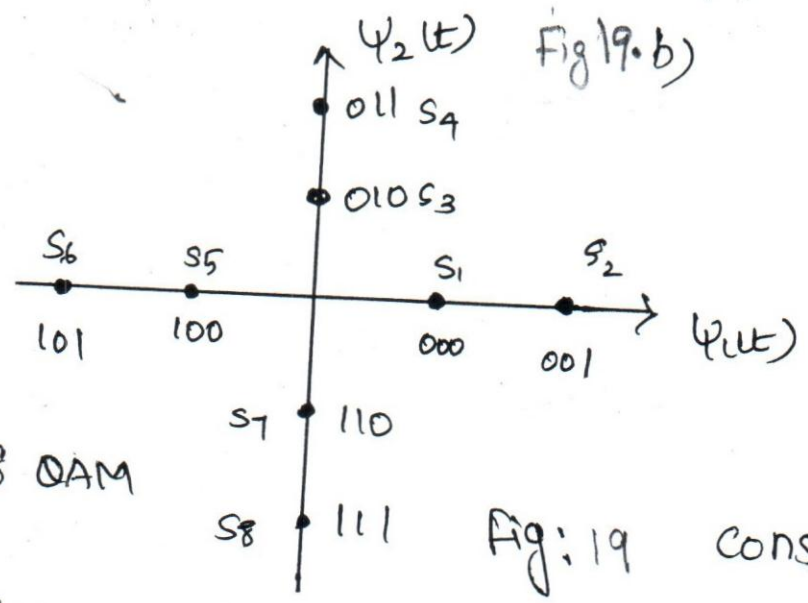 ψ2(t) Fig 19.b)
011 S4
010 S3
S6 S5 S1 S2
101 100 000 001 ψ1(t)
S7 110
QAM
S8 111 Fig: 19 cons